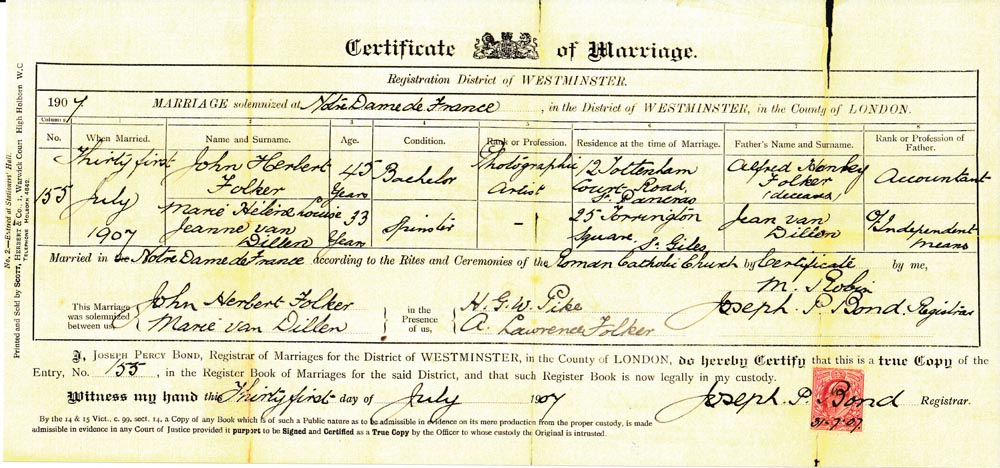 Certificate of Marriage.
Registration District of WESTMINSTER.
1907 MARRIAGE solemnized at Notre Dame de France, in the District of WESTMINSTER, in the County of LONDON.
Columns 1 2 3 4 5 6 7 8
No. When Married. Name and Surname. Age. Condition. Rank or Profession. Residence at the time of Marriage. Father's Name and Surname. Rank or Profession of Father.
155 Thirty first July 1907
John Herbert Folker 45 Years Bachelor Photographic Artist 12 Tottenham Court Road, St Pancras Alfred Folker (deceased) Accountant
Marie Hélène Louise Jeanne van Dillen 33 Years Spinster – 25 Torrington Square, St Giles Jean van Dillen Of Independent means
Married in the Notre Dame de France according to the Rites and Ceremonies of the Roman Catholic Church by Certificate by me,
M. Robin
This Marriage was solemnized between us, John Herbert Folker Marie van Dillen in the Presence of us, H. G. W. Pike A. Lawrence Folker Joseph P. Bond Registrar
I, JOSEPH PERCY BOND, Registrar of Marriages for the District of WESTMINSTER, in the County of LONDON, do hereby Certify that this is a true Copy of the
Entry, No. 155, in the Register Book of Marriages for the said District, and that such Register Book is now legally in my custody.
Witness my hand this Thirty first day of July 1907 Joseph P. Bond Registrar.
31-7-07
By the 14 & 15 Vict., c. 99, sect. 14, a Copy of any Book which is of such a Public nature as to be admissible in evidence on its mere production from the proper custody, is made
admissible in evidence in any Court of Justice provided it purport to be Signed and Certified as a True Copy by the Officer to whose custody the Original is intrusted.
No. 2.—Entered at Stationers' Hall.
Printed and Sold by SCOTT, HERBERT & Co., 1, Warwick Court High Holborn W.C
TELEPHONE HOLBORN 4842.